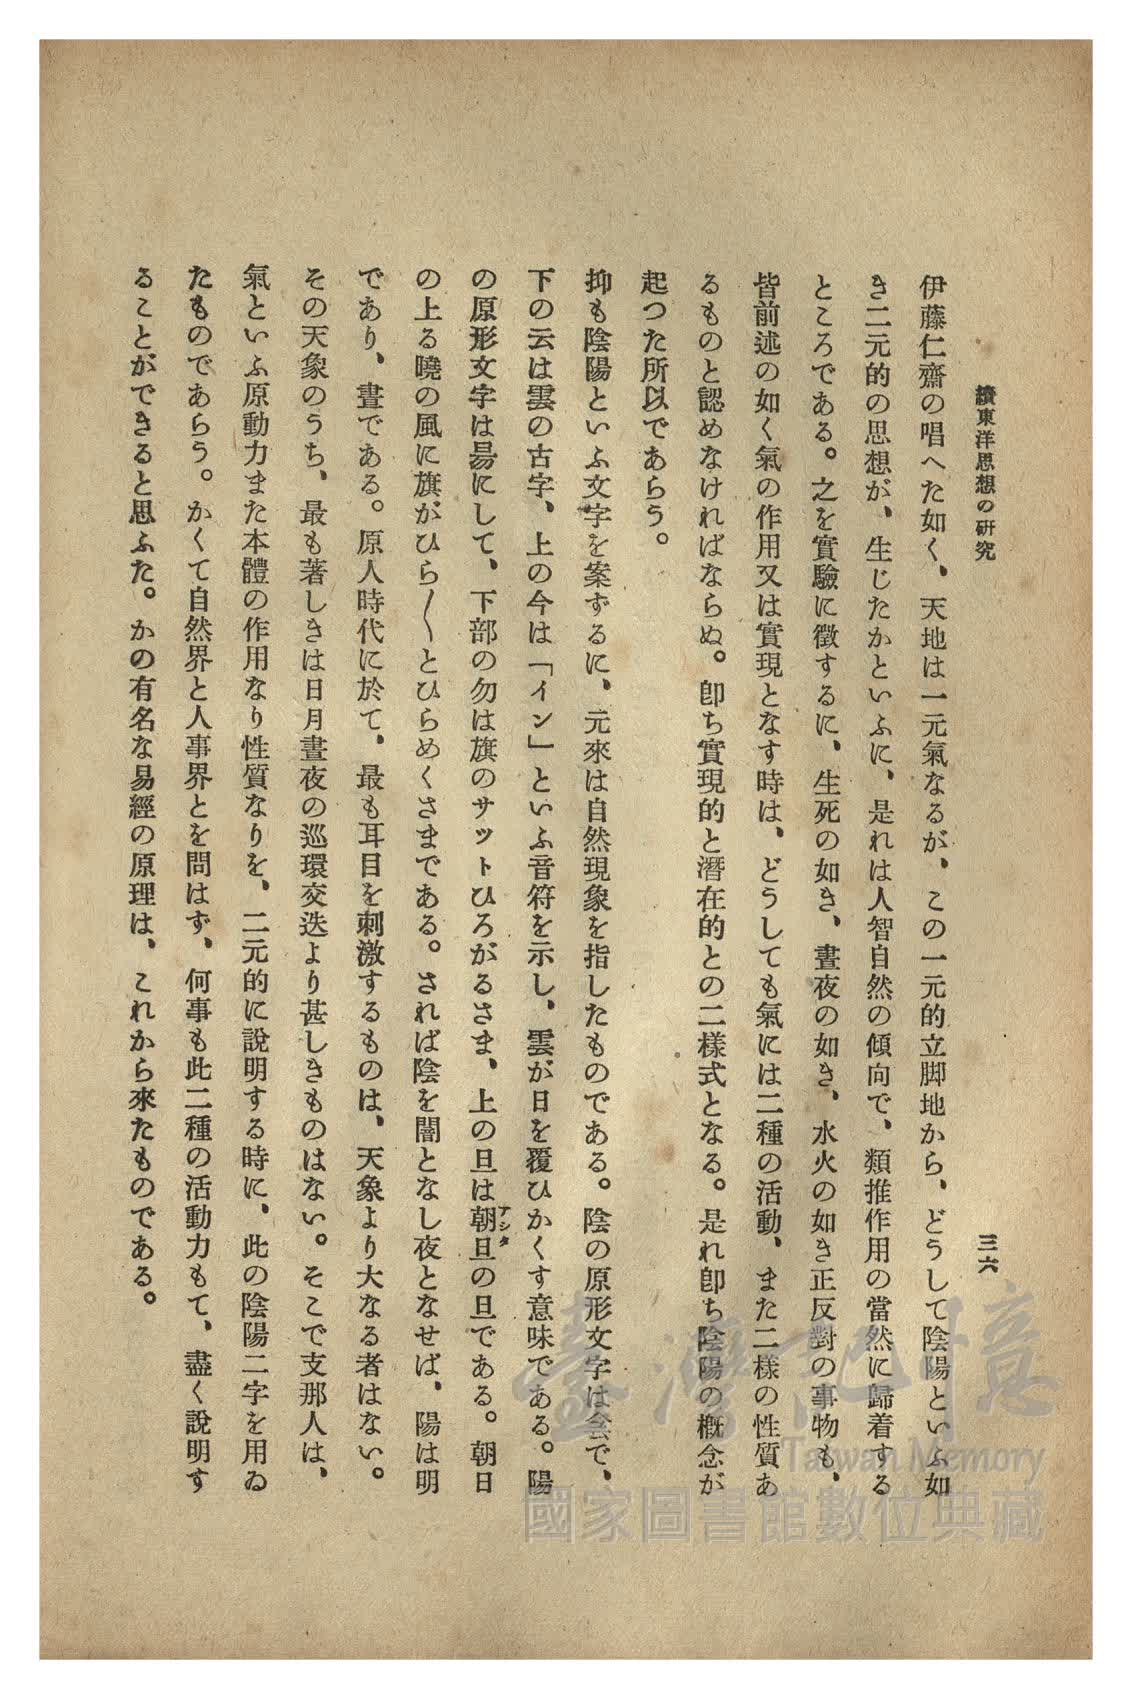 續東洋思想の研究
三六
伊藤仁齋の唱へた如く、天地は一元氣なるが、この一元的立脚地から、どうして陰陽といふ如
き二元的の思想が、生じたかといふに、是れは人智自然の傾向で、類推作用の當然に歸着する
ところである。之を實驗に徵するに、生死の如き、晝夜の如き、水火の如き正反對の事物も、
皆前述の如く氣の作用又は實現となす時は、どうしても氣には二種の活動、また二樣の性質あ
るものと認めなければならぬ。卽ち實現的と潛在的との二樣式となる。是れ卽ち陰陽の概念が
起つた所以であらう。
抑も陰陽といふ文字を案ずるに、元來は自然現象を指したものである。陰の原形文字は侌で、
下の云は雲の古字、上の今は「イン」といふ音符を示し、雲が日を覆ひかくす意味である。陽
の原形文字は昜にして、下部の勿は旗のサットひろがるさま、上の旦は朝旦アシタの旦である。朝日
の上る曉の風に旗がひら〱とひらめくさまである。されば陰を闇となし夜となせば、陽は明
であり、晝である。原人時代に於て、最も耳目を刺激するものは、天象より大なる者はない。
その天象のうち、最も著しきは日月晝夜の巡環交迭より甚しきものはない。そこで支那人は、
氣といふ原動力また本體の作用なり性質なりを、二元的に說明する時に、此の陰陽二字を用ゐ
たものであらう。かくて自然界と人事界とを問はず、何事も此二種の活動力もて、盡く說明す
ることができると思ふた。かの有名な易經の原理は、これから來たものである。
臺灣記憶
Taiwan Memory
國家圖書館數位典藏